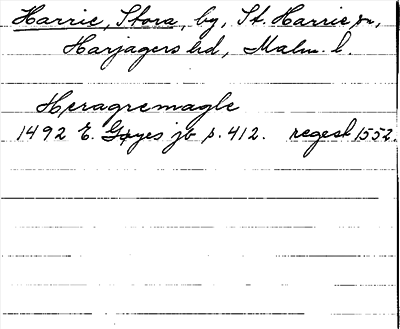 Harrie, Stora, by, St. Harrie sn,
Harjagers hd, Malm. l.
Heragremagle
1492 E. Gøyes jb s. 412. regest 1552.